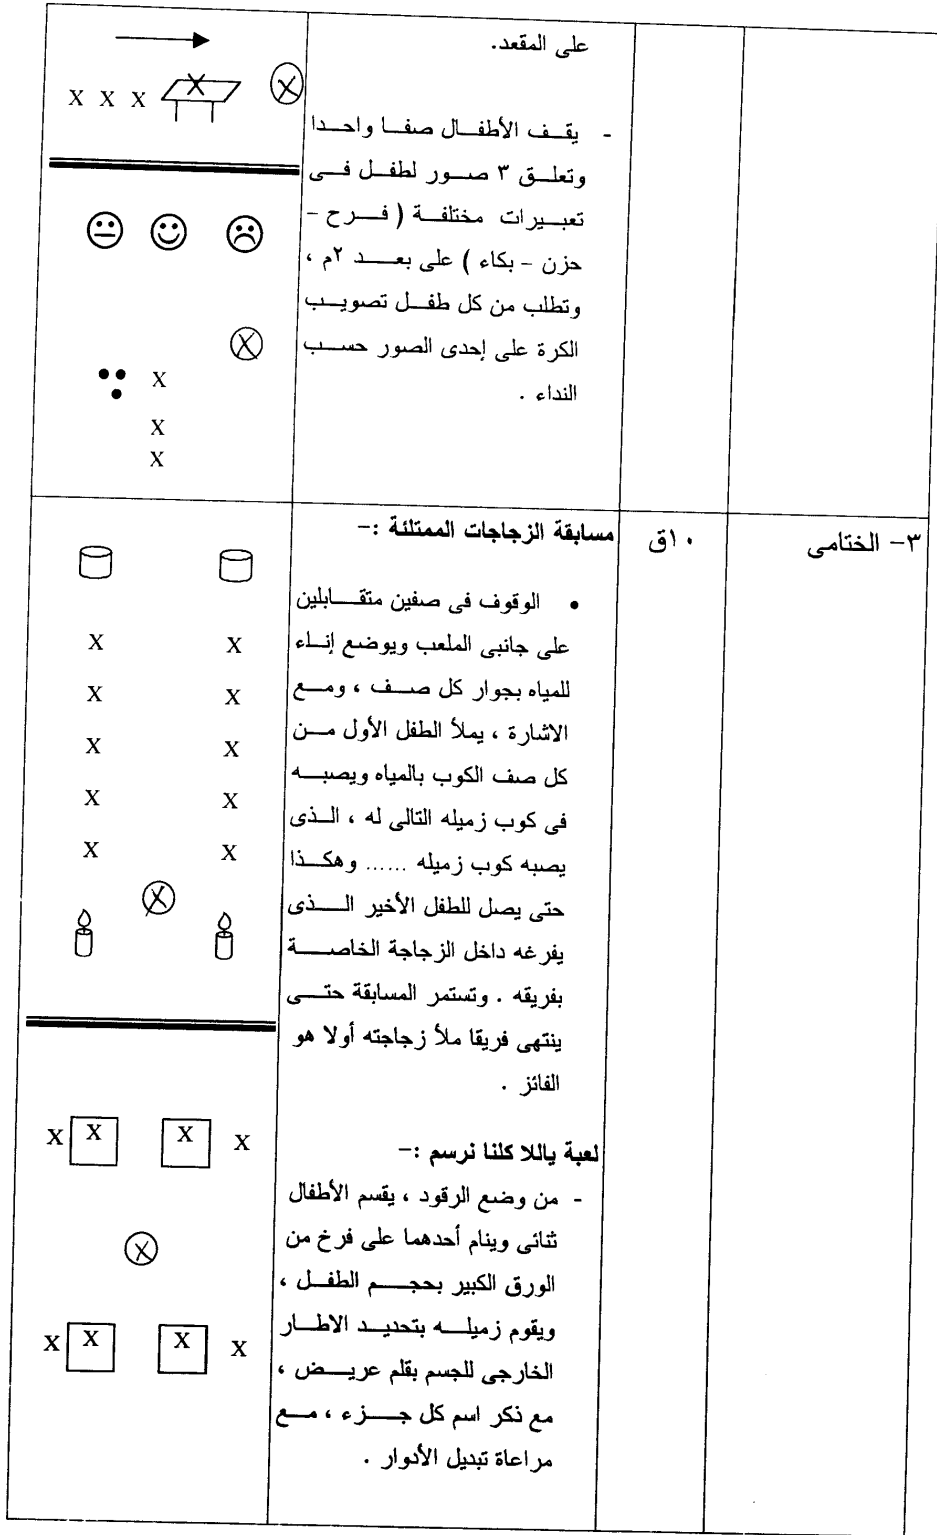 على المقعد.
- يقف الأطفال صفا واحدا
وتعلق ٣ صور لطفل فى
تعبيرات مختلفة ( فرح –
حزن – بكاء ) على بعد ٢م ،
وتطلب من كل طفل تصويب
الكرة على إحدى الصور حسب
النداء .
X X X X X
X
X
X
X
٣– الختامى
١٠ق
مسابقة الزجاجات الممتلئة :–
• الوقوف فى صفين متقابلين
على جانبى الملعب ويوضع إناء
للمياه بجوار كل صف ، ومع
الاشارة ، يملأ الطفل الأول من
كل صف الكوب بالمياه ويصبه
فى كوب زميله التالى له ، الذى
يصبه كوب زميله ...... وهكذا
حتى يصل للطفل الأخير الذى
يفرغه داخل الزجاجة الخاصة
بفريقه . وتستمر المسابقة حتى
ينتهى فريقا ملأ زجاجته أولا هو
الفائز .
لعبة ياللا كلنا نرسم :–
- من وضع الرقود ، يقسم الأطفال
ثنائى وينام أحدهما على فرخ من
الورق الكبير بحجم الطفل ،
ويقوم زميله بتحديد الاطار
الخارجى للجسم بقلم عريض ،
مع ذكر اسم كل جزء ، مع
مراعاة تبديل الأدوار .
X X
X X
X X
X X
X X
X
X X X X
X
X X X X